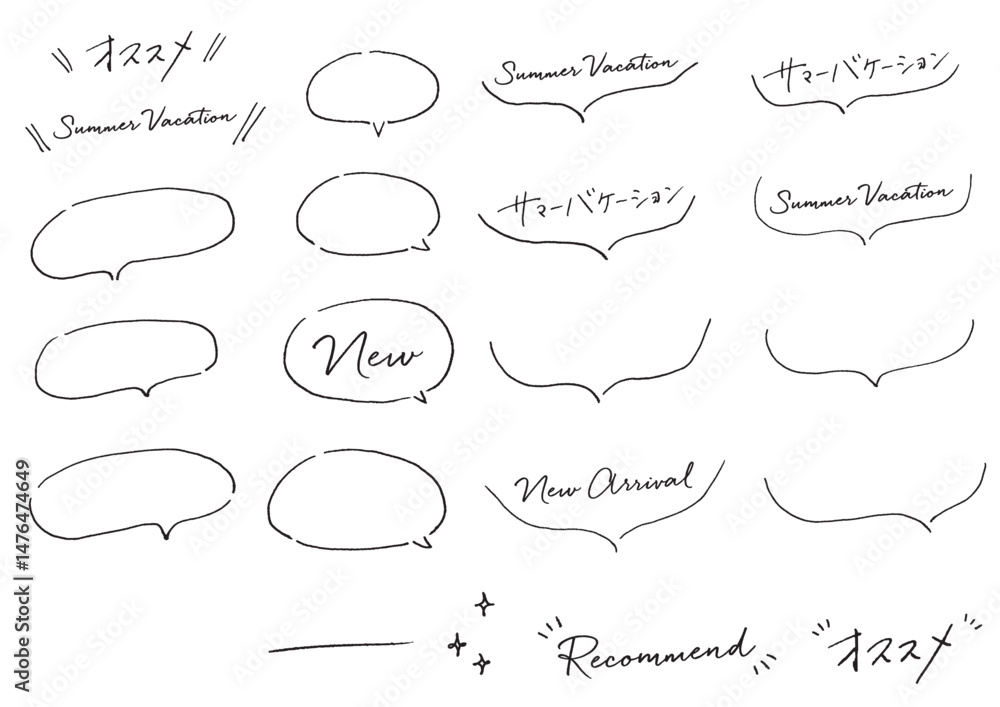 オススメ
Summer Vacation
サマーバケーション
Summer Vacation
サマーバケーション
Summer Vacation
New
New Arrival
Recommend
オススメ
Adobe Stock | #1476474649